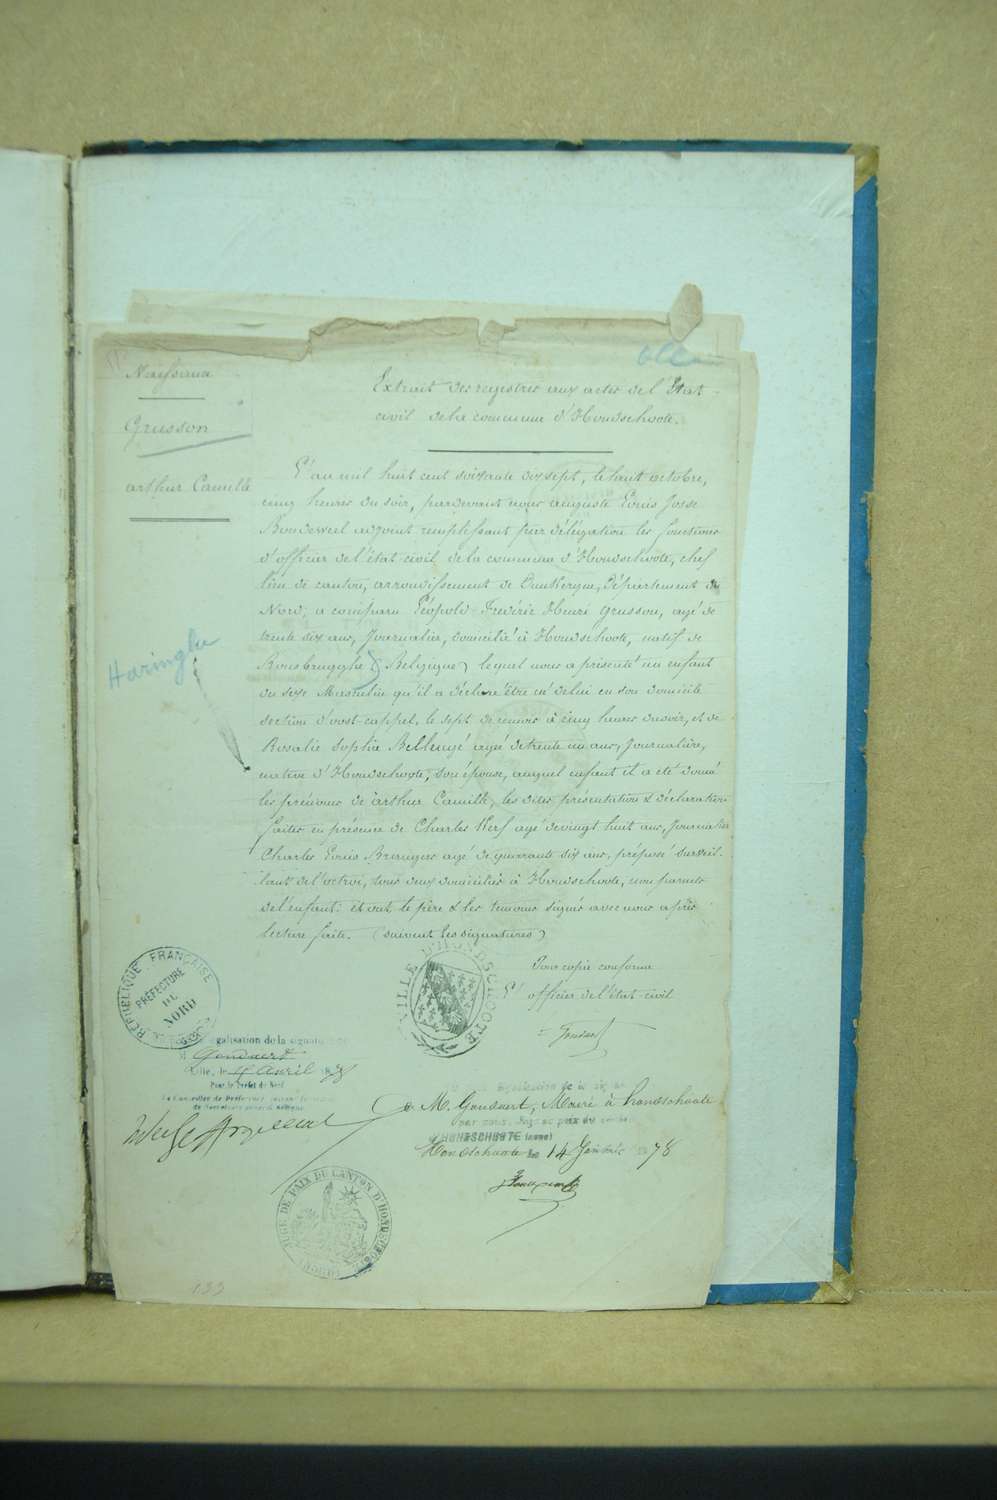 Naissance
Grusson
Arthur Camille
Haringhe
Extrait des registres aux actes de l'Etat
civil de la commune d'Hondschoote.
L'an mil huit cent soixante dix sept, le huit octobre,
cinq heures du soir, pardevant nous auguste Louis Josse
adjoint remplissant par délégation les fonctions
d'officier de l'état civil de la commune d'Hondschoote, chef
lieu de canton, arrondissement de Dunkerque, Département du
Nord, a comparu Léopold Frédéric Henri Grusson, agé de
trente six ans, Journalier, domicilié à Hondschoote, natif de
Rousbrugghe (Belgique) lequel nous a présenté un enfant
du sexe Masculin qu'il a déclaré être né de lui en son domicile
section d'oost-cappel, le sept de ce mois à cinq heures du soir, et de
Rosalie Sophie Bellengé agée de trente un ans, Journalière,
native d'Hondschoote, son épouse, auquel enfant il a été donné
les prénoms de arthur Camille, les dites présentation & déclaration
faites en présence de Charles Kerf agé de vingt huit ans, Journalier
Charles Louis agé de quarante six ans, préposé surveil-
lant de l'octroi, tous deux domiciliés à Hondschoote, non parents
de l'enfant: et ont, le père & les témoins signés avec nous après
lecture faite. (suivent les signatures)
Pour copie conforme
L'officier de l'état-civil
Goudaert
VILLE D'HONDSCHOOTE
RÉPUBLIQUE FRANÇAISE
PRÉFECTURE
DU
NORD
légalisation de la signature
Goudaert
Lille, le 4 Avril 1878
Pour le Préfet du Nord
Le Conseiller de Préfecture
M. Goudaert, Maire à hondschoote
HONDSCHOOTE (NORD)
Hondschoote le 14 Janvier 1878
JUGE DE PAIX DU CANTON D'HONDSCHOOTE (NORD)